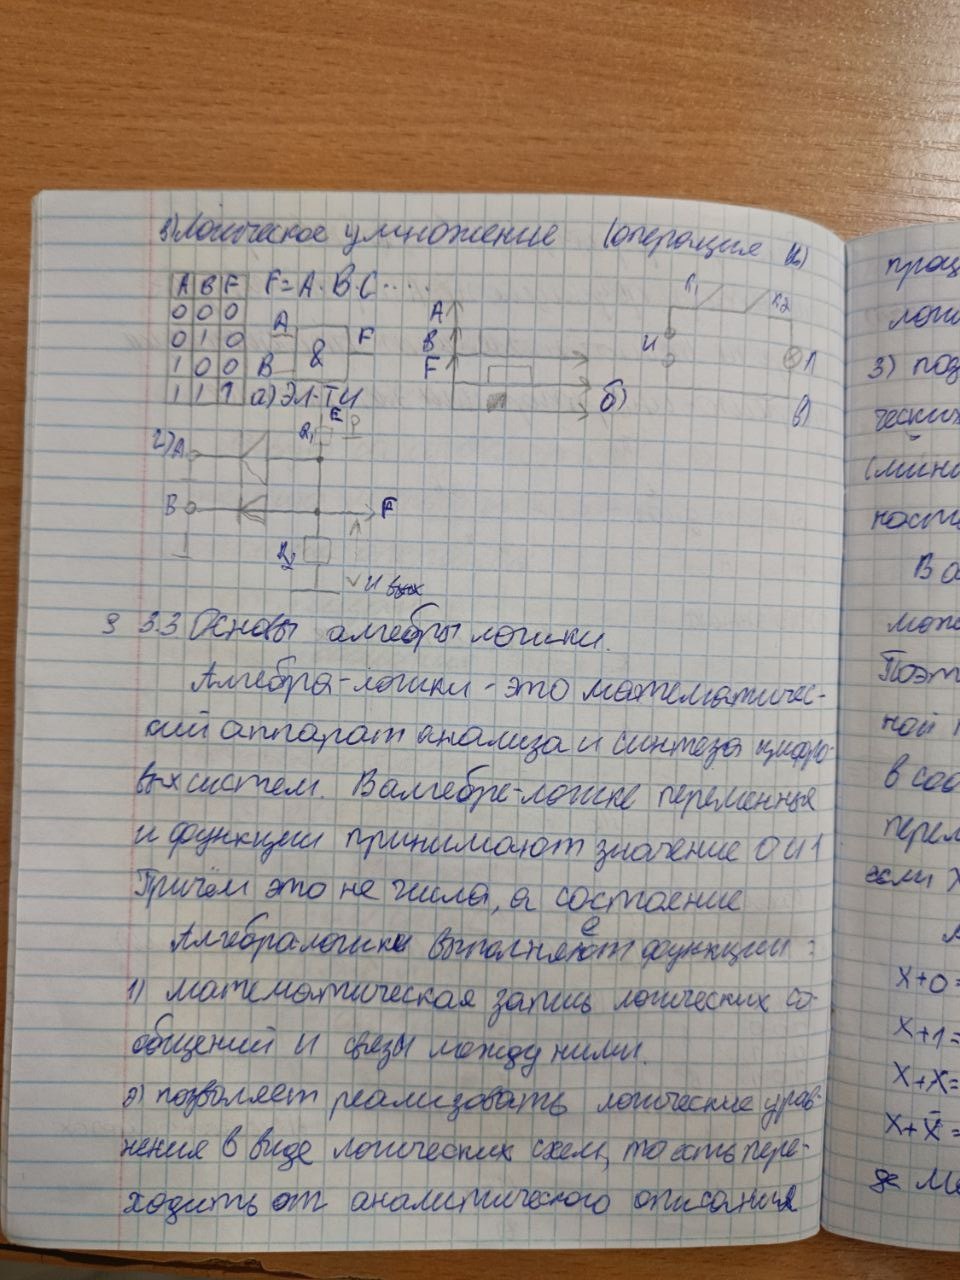 в) Логическое умножение (операция И)
A B F F = A · B · C ....
0 0 0
0 1 0
1 0 0
1 1 1
A
B
&
F
а) ЭЛ-ТИ
A
B
F
б)
К1
К2
И
Л
в)
г) A
E
R1
B
F
R2
U вых
3.3 Основы алгебры логики.
Алгебра-логики - это математичес-
кий аппарат анализа и синтеза цифро-
вых систем. В алгебре-логике переменные
и функции принимают значение 0 и 1
Причём это не числа, а состояние
Алгебра-логики выполняет функции:
1) математическая запись логических со-
общений и связы между ними.
2) позволяет реализовать логические урав-
нения в виде логических схем, то есть пере-
ходить от аналитического описания
проц
логи
3) поз
ческих
(мини
ность
В а
може
Поэт
ной
в соо
перем
если X
X+0=
X+1=
X+X=
X+X̄=